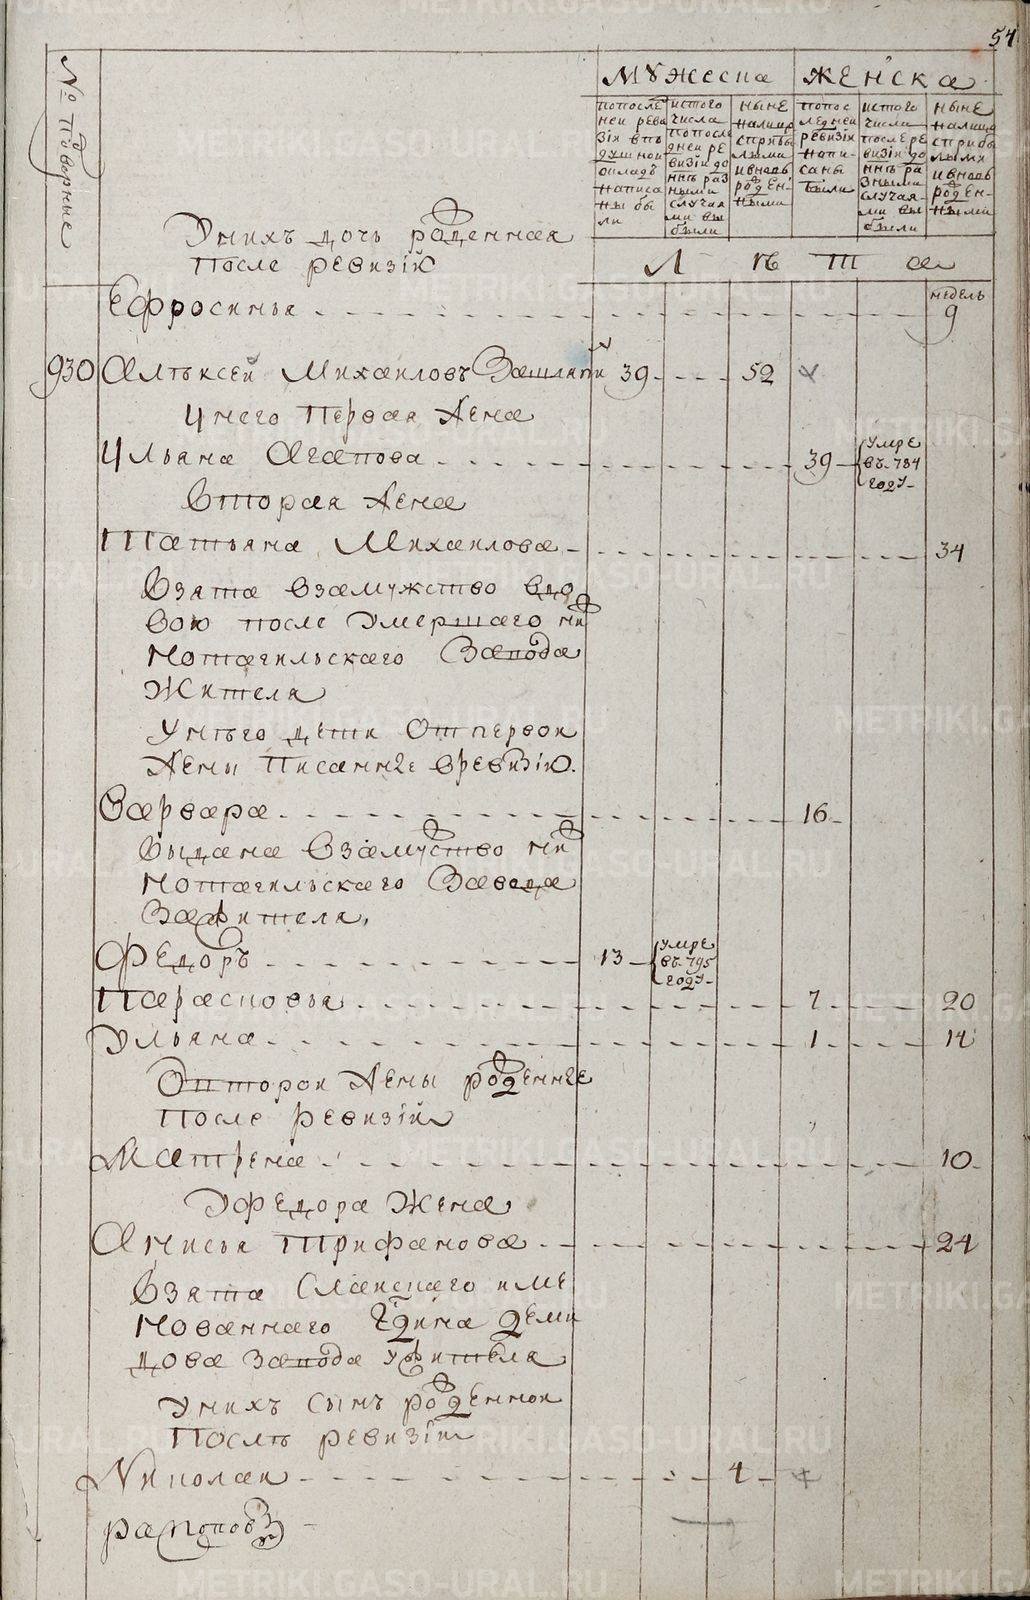 54
№ подворные
мужеска женска
попосле
ней реви
зіи впо
душном
окладѣ
написа
ны бы
ли
истого
числа
попосле
дней ре
визіи до
ннѣ раз
ными
случая
ми вы
были
нынѣ
налицо
сприбы
лыми
ивновь
рожден-
ными
попос
ледней
ревизіи
напи-
саны
были
истого
числа
послѣ ре
визіи до
ннѣ ра
зными
случая-
ми вы
были
нынѣ
налицо
сприбы
лыми
ивновь
рожден-
ными
Л ѣ т а
Унихъ дочь рожденная
после ревизіи
недель
Ефросинья 9
930 Алѣксей Михаиловъ 39 52
Унего первая жена
Ульяна Агапова 39 умре
въ 784
году
Вторая жена
Татьяна Михаилова 34
Взята взамужство вдо
вою после умершаго ни
жнотагильскаго завода
жителя
Унѣго дети от первой
жены писанные вревизію.
Варвара 16
выдана взамуство ни
жнотагильскаго завода
зажителя.
Федоръ 13 умре
въ 795
году
Парасковья 7 20
Ульяна 1 14
От второй жены рожденные
после ревизіи
Матрена 10
Уфедора жена
Анисья Трифанова 24
Взята
нованнаго Гдина Деми
дова завода ужителя
Унихъ сынъ рожденной
послѣ ревизіи
Николай 4